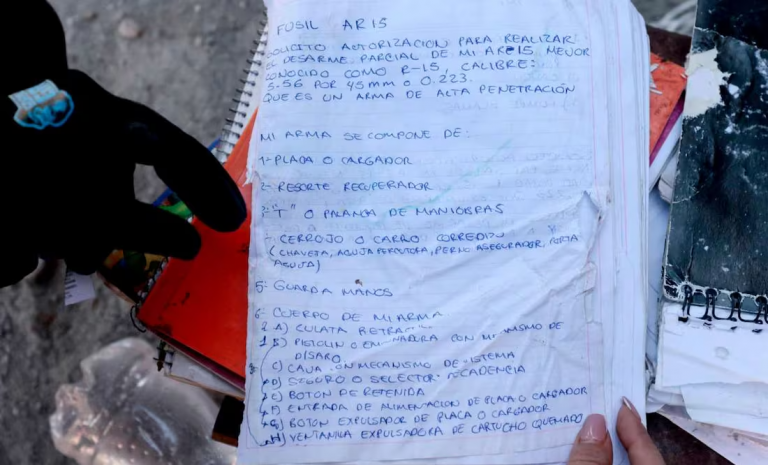 FUSIL AR15
SOLICITO AUTORIZACION PARA REALIZAR
EL DESARME PARCIAL DE MI AR-15 MEJOR
CONOCIDO COMO R-15, CALIBRE:
5.56 POR 45 MM O 0.223.
QUE ES UN ARMA DE ALTA PENETRACIÓN
MI ARMA SE COMPONE DE:
1- PLACA O CARGADOR
2- RESORTE RECUPERADOR
3- "T" O PALANCA DE MANIOBRAS
- CERROJO O CARRO CORREDIZO
(CHAVETA, AGUJA PERCUTORA, PERNO ASEGURADOR, PORTA
AGUJA)
5- GUARDA MANOS
6- CUERPO DE MI ARMA
A) CULATA
B) PISTOLIN O CON DE
DISARO
C) CAJA MECANISMO DE
D) SEGURO O SELECTOR CADENCIA
E) BOTON DE RETENIDA
F) ENTRADA DE ALIMENTACION DE PLACA O CARGADOR
G) BOTON EXPULSADOR DE PLACA O CARGADOR
H) VENTANILLA EXPULSADORA DE CARTUCHO QUEMADO